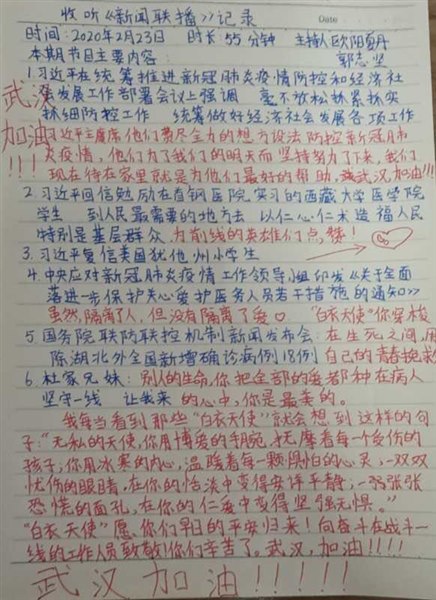 收听《新闻联播》记录
Date
时间:2020年2月23日 时长:55分钟 主持人欧阳夏丹
郭志坚
本期节目主要内容:
1.习近平在统筹推进新冠肺炎疫情防控和经济社
会发展工作部署会议上强调 毫不放松抓紧抓实
抓细防控工作 统筹做好经济社会发展各项工作
武汉
加油
!!!
习近平主席他们费尽全力的想方设法防控新冠肺
炎疫情,他们为了我们的明天而坚持努力了下来,我们
现在待在家里就是为他们最好的帮助。武汉加油!!!
2.习近平回信勉励在首钢医院实习的西藏大学医学院
学生 到人民最需要的地方去 以仁心仁术造福人民
特别是基层群众 为前线的英雄们点赞!
3.习近平复信美国犹他州小学生
4.中央应对新冠肺炎疫情工作领导小组印发《关于全面
落进一步保护关心爱护医务人员若干措施的通知》
虽然隔离了人,但没有隔离了爱 "白衣天使"你穿梭
5.国务院联防联控机制新闻发布会: 在生死之间,用
除湖北外全国新增确诊病例18例 自己的青春挽救
6.杜家兄妹: 别人的生命,你把全部的爱都种在病人
坚守一线 让我来 的心中,你是最美的。
我每当看到那些"白衣天使"就会想到这样的句
子:"无私的天使,你用博爱的手腕,抚摩着每一个受伤的
孩子,你用冰寒的内心,温暖着每一颗惧怕的心灵,一双双
忧伤的眼睛,在你的恬淡中变得安详平静,一张张
恐慌的面孔,在你的仁爱中变得坚强无惧。"
"白衣天使"愿你们早日的平安归来!向奋斗在战斗一
线的工作人员致敬!你们辛苦了。武汉,加油!!!!
武汉加油!!!!!